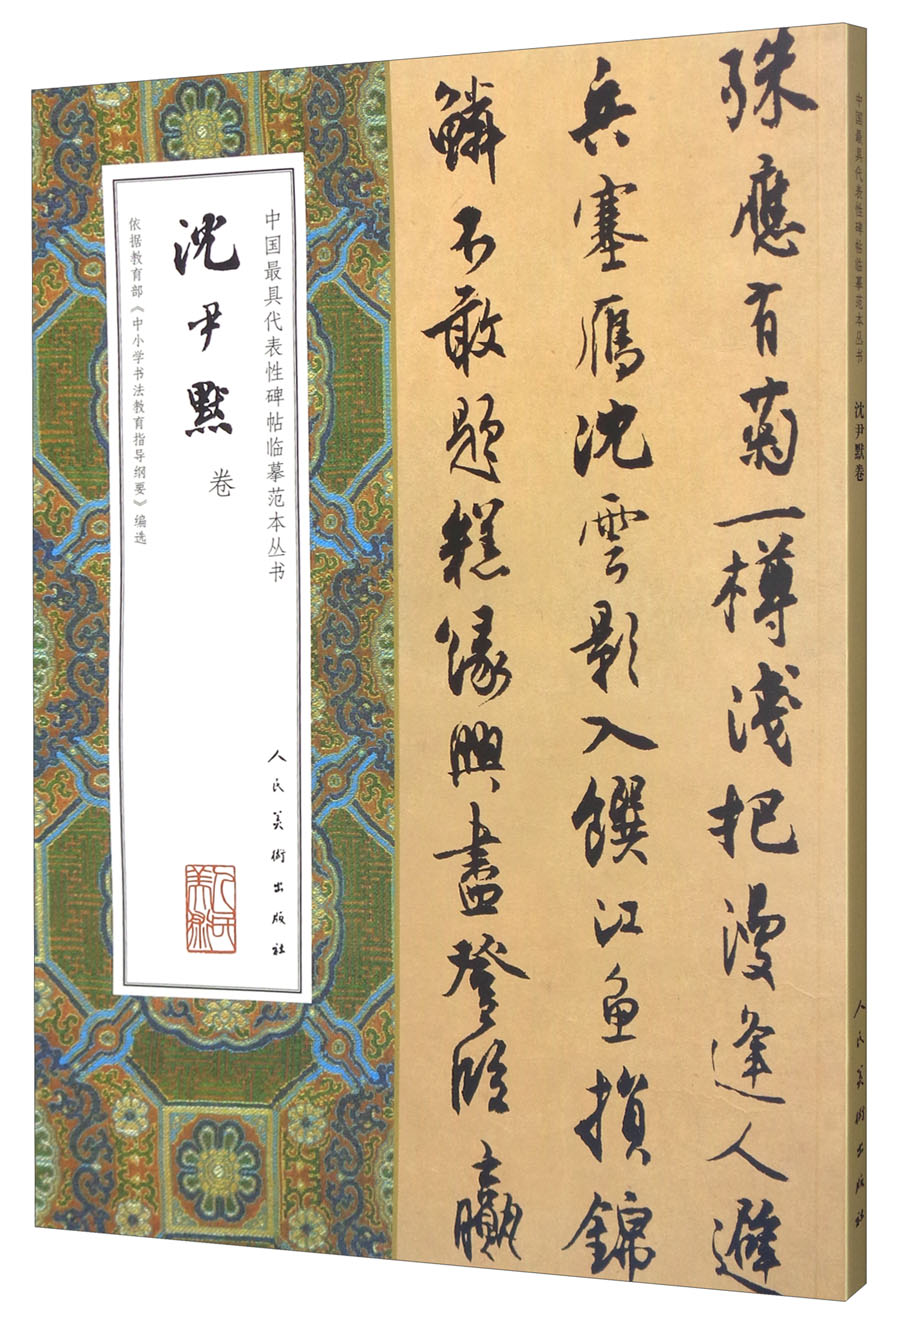 中国最具代表性碑帖临摹范本丛书
沈尹默卷
依据教育部《中小学书法教育指导纲要》编选
人民美術出版社
殊應有菊一樽淺把漫逢人避
兵塞雁沈雲影入饌江魚損錦
鱗不敢題糕緣興盡登臨贏
中国最具代表性碑帖临摹范本丛书 沈尹默卷 人民美術出版社